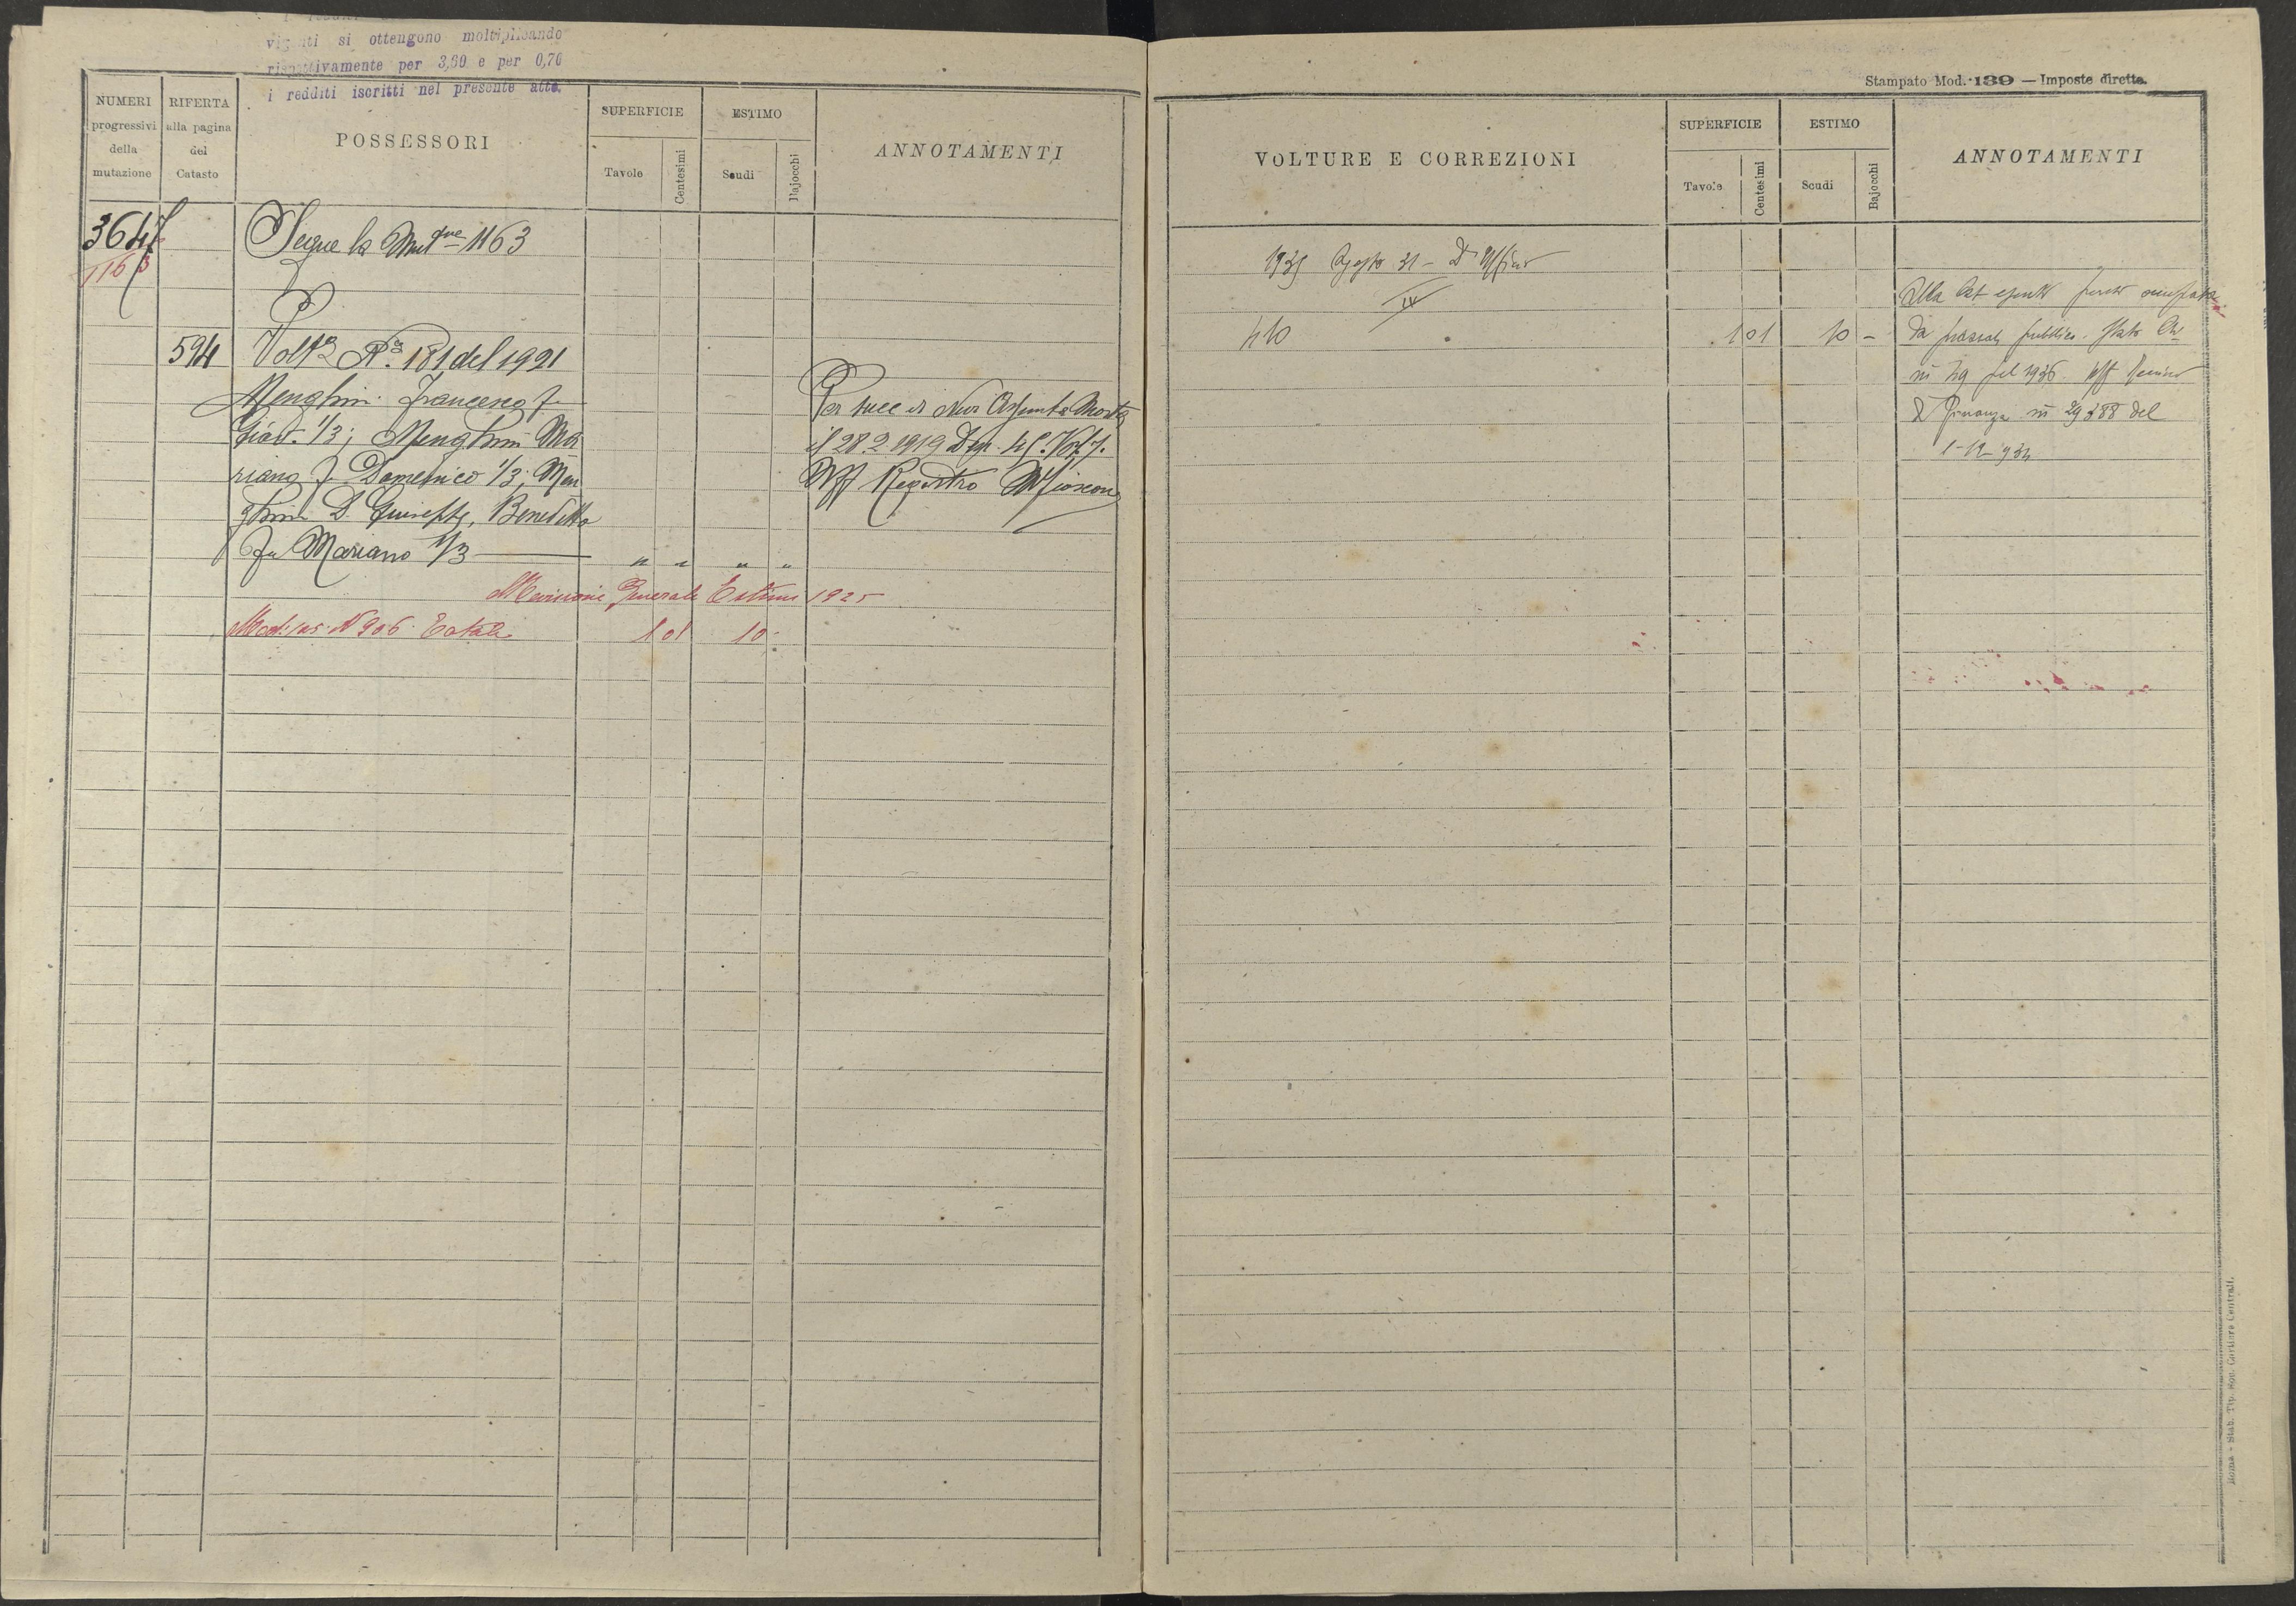 vigenti si ottengono moltiplicando
rispettivamente per 3,60 e per 0,70
i redditi iscritti nel presente atto.
NUMERI
progressivi
della
mutazione
RIFERTA
alla pagina
del
Catasto
POSSESSORI
SUPERFICIE
Tavole
Centesimi
ESTIMO
Scudi
Bajocchi
ANNOTAMENTI
3647
1163
Segue la Mutne 1163
594
Voltra No. 181 del 1921
Menghini Francesco f
Giov. 1/3; Menghini Ma
riano f. Domenico 1/3; Men
ghini D. Giuseppe, Benedetto
fu Mariano 1/3
" " " "
Per succ di Assunta Morta
il 28.2.1919 Den. 45. Vol. 7.
Uff Registro
Revisione Generale Estimi 1925
Mod. 105. N 906 Totale 1 01 10
Stampato Mod. 139 — Imposte dirette.
VOLTURE E CORREZIONI
SUPERFICIE
Tavole
Centesimi
ESTIMO
Scudi
Bajocchi
ANNOTAMENTI
1935 Agosto 31 - D'Ufficio
IV
410 1 01 10 -
Alla
da pubblico. Stato
n 49 del 1936.
di Finanza n 29388 del
1-12-934
Roma - Stab. Tip. Cartiere Centrali.